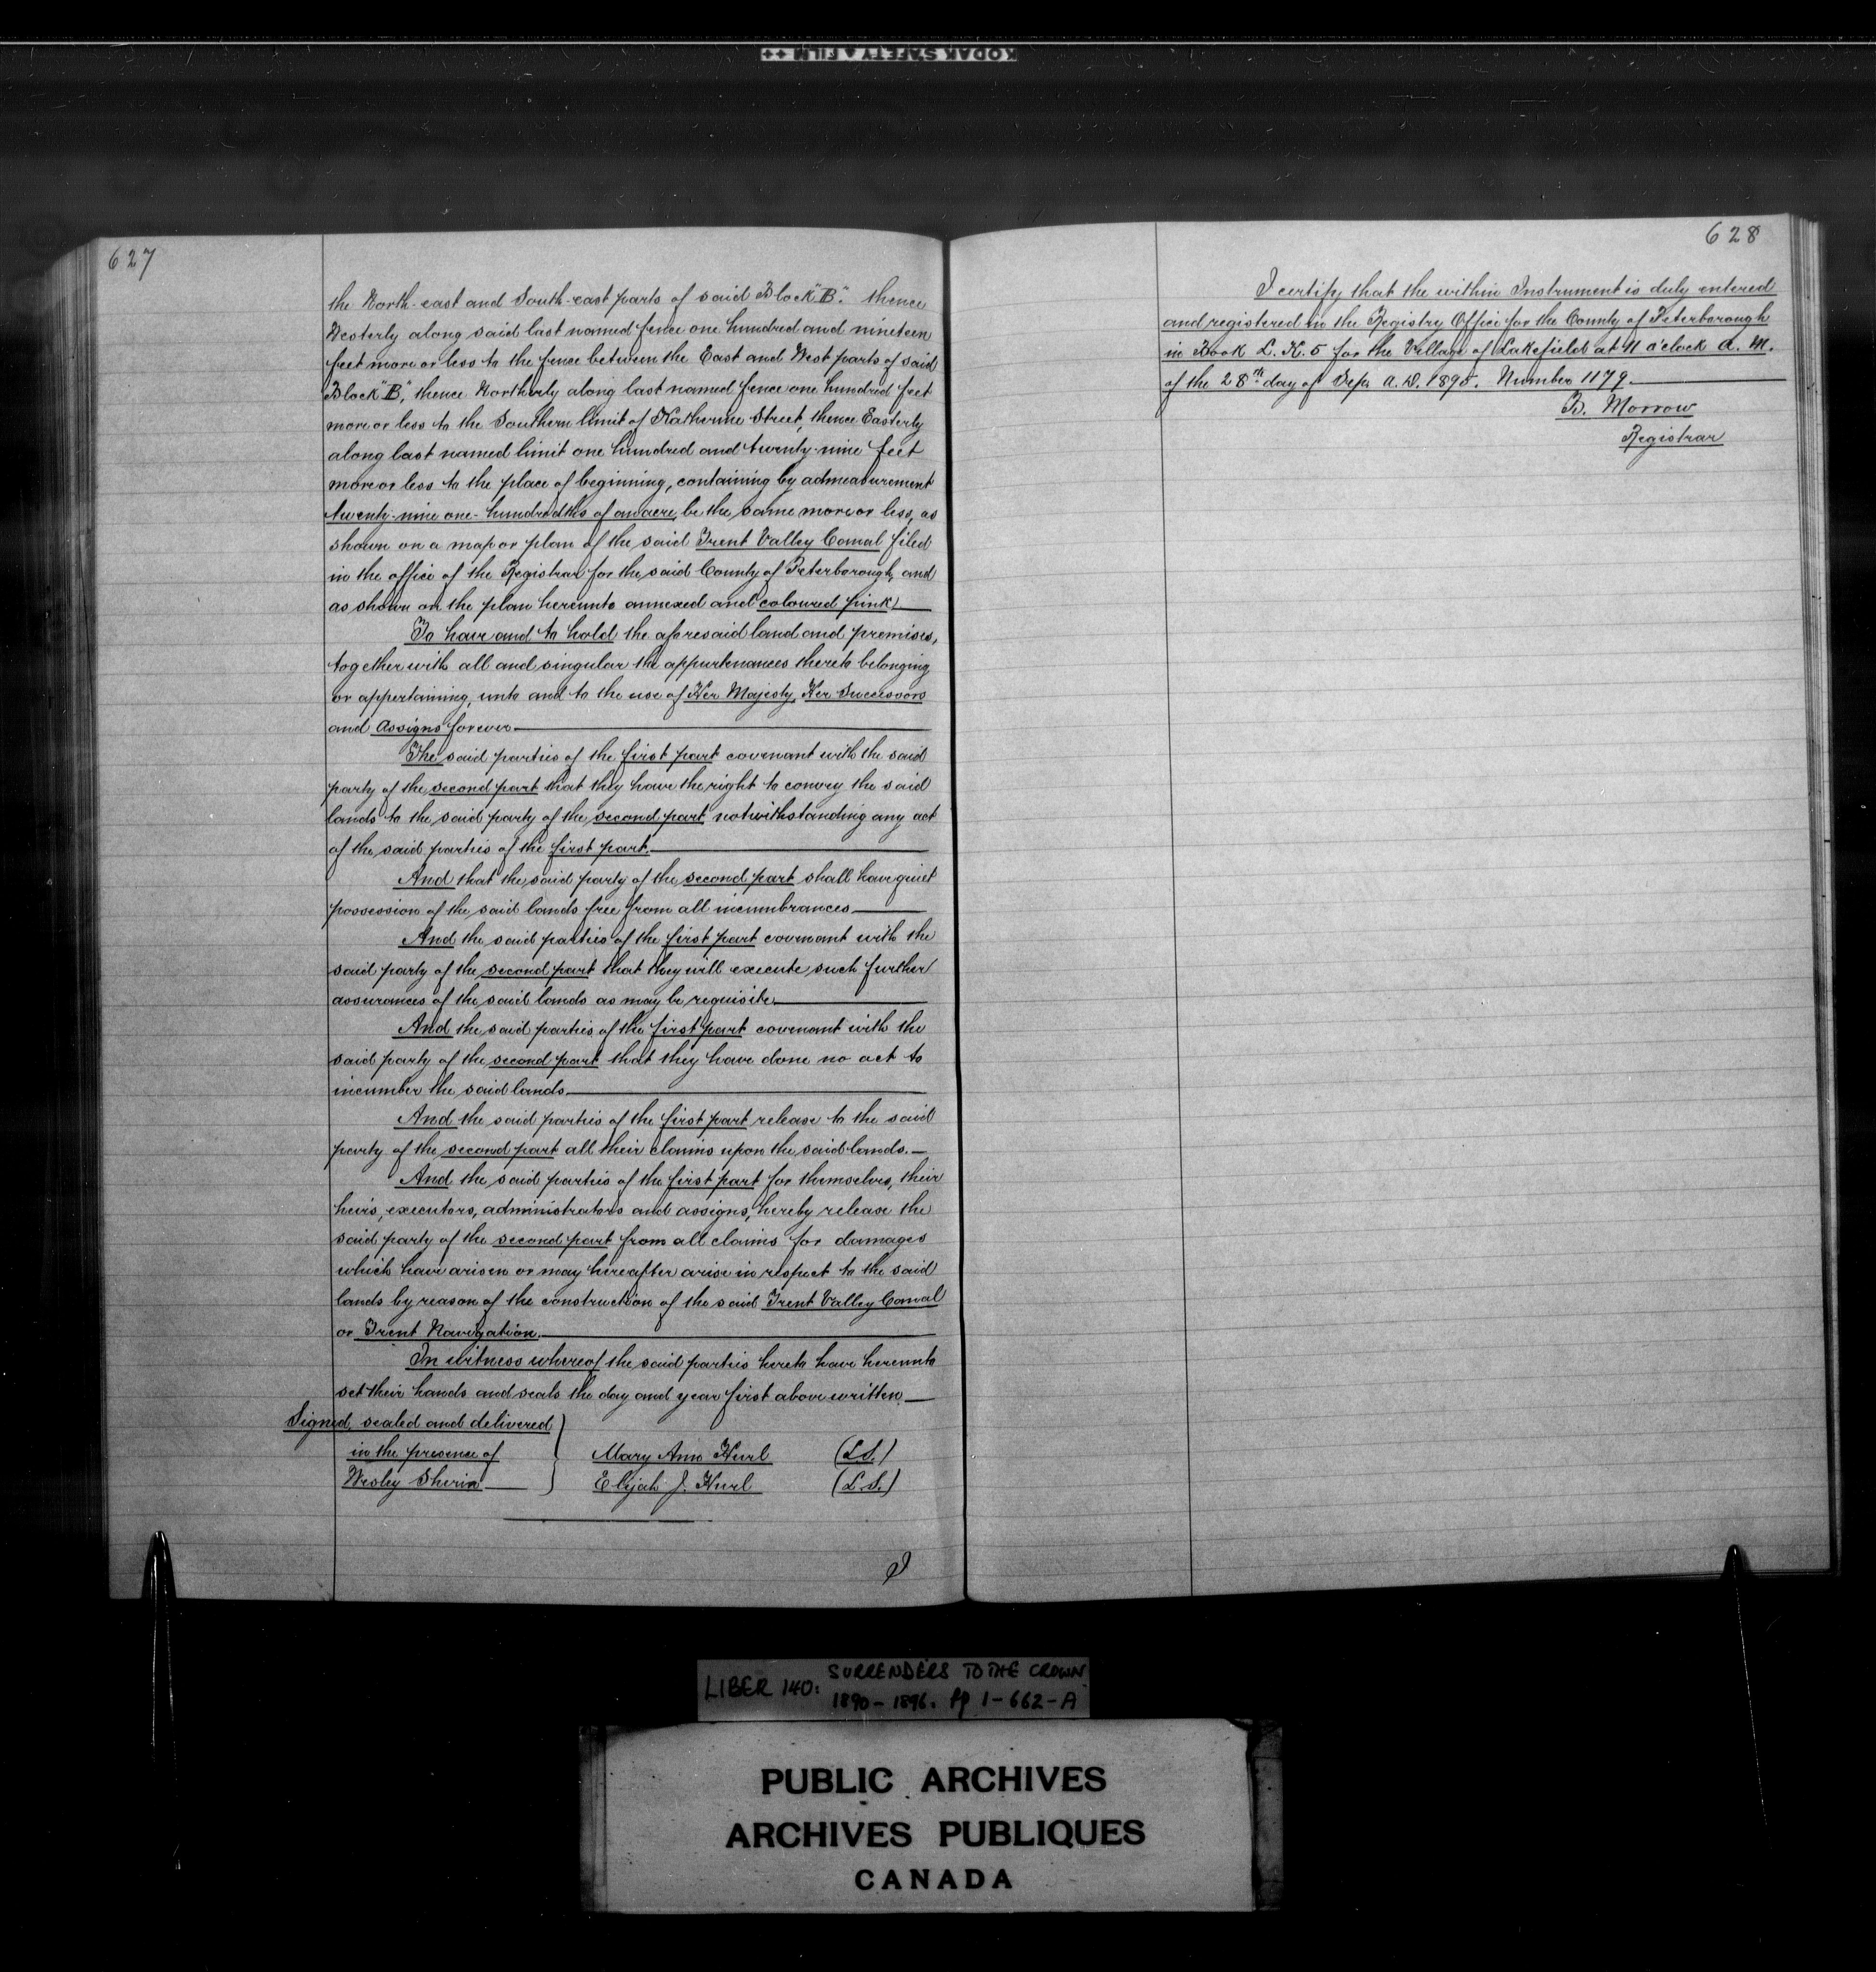 KODAK SAFETY FILM
627
the North-east and South-east parts of said Block "B". thence
Westerly along said last named fence one hundred and nineteen
feet more or less to the fence between the East and West parts of said
Block "B", thence Northerly along last named fence one hundred feet
more or less to the Southern limit of Katherine Street, thence Easterly
along last named limit one hundred and twenty-nine feet
more or less to the place of beginning, containing by admeasurement
twenty-nine one-hundredths of an acre, be the same more or less, as
shown on a map or plan of the said Trent Valley Canal filed
in the office of the Registrar for the said County of Peterborough, and
as shown on the plan hereunto annexed and coloured pink)
To have and to hold the aforesaid land and premises,
together with all and singular the appurtenances thereto belonging
or appertaining, unto and to the use of Her Majesty, Her Successors
and Assigns forever
The said parties of the first part covenant with the said
party of the second part that they have the right to convey the said
lands to the said party of the second part notwithstanding any act
of the said parties of the first part.
And that the said party of the second part shall have quiet
possession of the said lands free from all incumbrances
And the said parties of the first part covenant with the
said party of the second part that they will execute such further
assurances of the said lands as may be requisite.
And the said parties of the first part covenant with the
said party of the second part that they have done no act to
incumber the said lands
And the said parties of the first part release to the said
party of the second part all their claims upon the said lands.
And the said parties of the first part for themselves, their
heirs, executors, administrators and assigns, hereby release the
said party of the second part from all claims for damages
which have arisen or may hereafter arise in respect to the said
lands by reason of the construction of the said Trent Valley Canal
or Trent Navigation.
In witness whereof the said parties hereto have hereunto
set their hands and seals the day and year first above written
Signed, sealed and delivered
in the presence of Mary Ann Hurl (L.S.)
Wesley Sherin Elijah J. Hurl (L.S.)
I
628
I certify that the within Instrument is duly entered
and registered in the Registry Office for the County of Peterborough
in Book L. K. 5 for the Village of Lakefield at 11 o'clock A. M.
of the 28th day of Sep. A. D. 1895. Number 1179.
B. Morrow
Registrar
LIBER 140: SURRENDERS TO THE CROWN
1890-1896. pp 1-662-A
PUBLIC ARCHIVES
ARCHIVES PUBLIQUES
CANADA